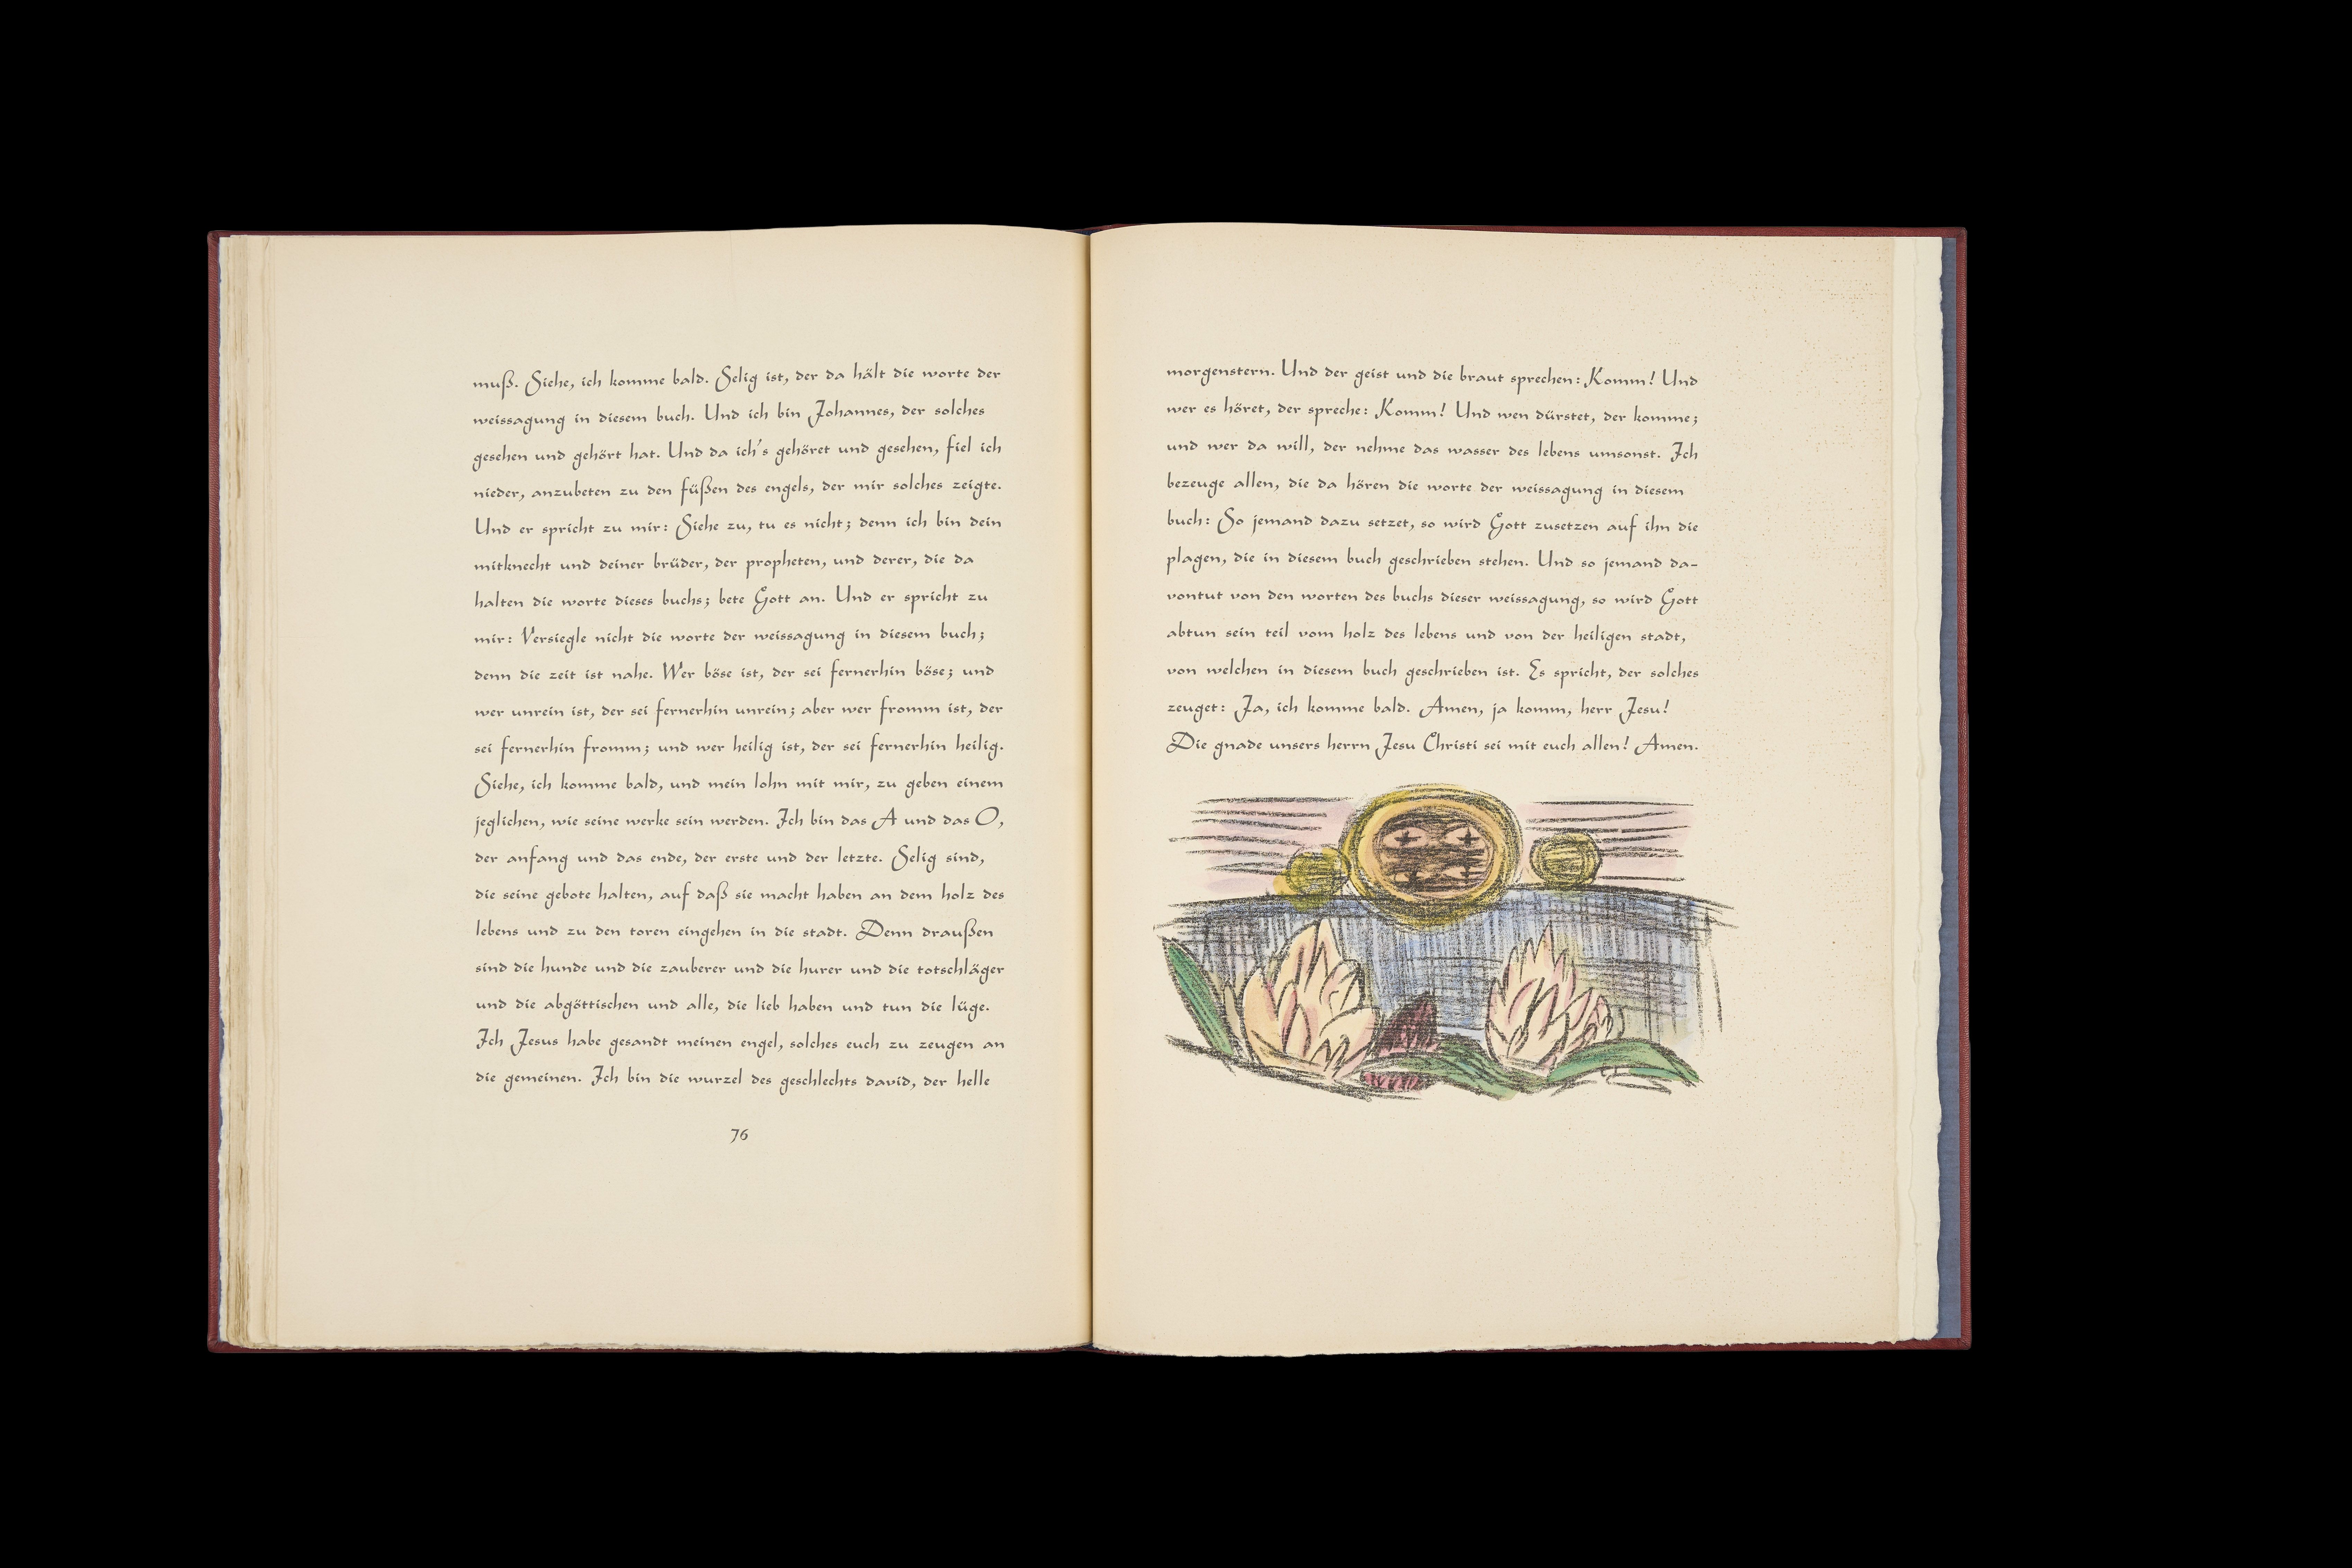 muß. Siehe, ich komme bald. Selig ist, der da hält die worte der
weissagung in diesem buch. Und ich bin Johannes, der solches
gesehen und gehört hat. Und da ich's gehöret und gesehen, fiel ich
nieder, anzubeten zu den füßen des engels, der mir solches zeigte.
Und er spricht zu mir: Siehe zu, tu es nicht; denn ich bin dein
mitknecht und deiner brüder, der propheten, und derer, die da
halten die worte dieses buchs; bete Gott an. Und er spricht zu
mir: Versiegle nicht die worte der weissagung in diesem buch;
denn die zeit ist nahe. Wer böse ist, der sei fernerhin böse; und
wer unrein ist, der sei fernerhin unrein; aber wer fromm ist, der
sei fernerhin fromm; und wer heilig ist, der sei fernerhin heilig.
Siehe, ich komme bald, und mein lohn mit mir, zu geben einem
jeglichen, wie seine werke sein werden. Ich bin das A und das O,
der anfang und das ende, der erste und der letzte. Selig sind,
die seine gebote halten, auf daß sie macht haben an dem holz des
lebens und zu den toren eingehen in die stadt. Denn draußen
sind die hunde und die zauberer und die hurer und die totschläger
und die abgöttischen und alle, die lieb haben und tun die lüge.
Ich Jesus habe gesandt meinen engel, solches euch zu zeugen an
die gemeinen. Ich bin die wurzel des geschlechts david, der helle
76
morgenstern. Und der geist und die braut sprechen: Komm! Und
wer es höret, der spreche: Komm! Und wen dürstet, der komme;
und wer da will, der nehme das wasser des lebens umsonst. Ich
bezeuge allen, die da hören die worte der weissagung in diesem
buch: So jemand dazu setzet, so wird Gott zusetzen auf ihn die
plagen, die in diesem buch geschrieben stehen. Und so jemand da-
vontut von den worten des buchs dieser weissagung, so wird Gott
abtun sein teil vom holz des lebens und von der heiligen stadt,
von welchen in diesem buch geschrieben ist. Es spricht, der solches
zeuget: Ja, ich komme bald. Amen, ja komm, herr Jesu!
Die gnade unsers herrn Jesu Christi sei mit euch allen! Amen.